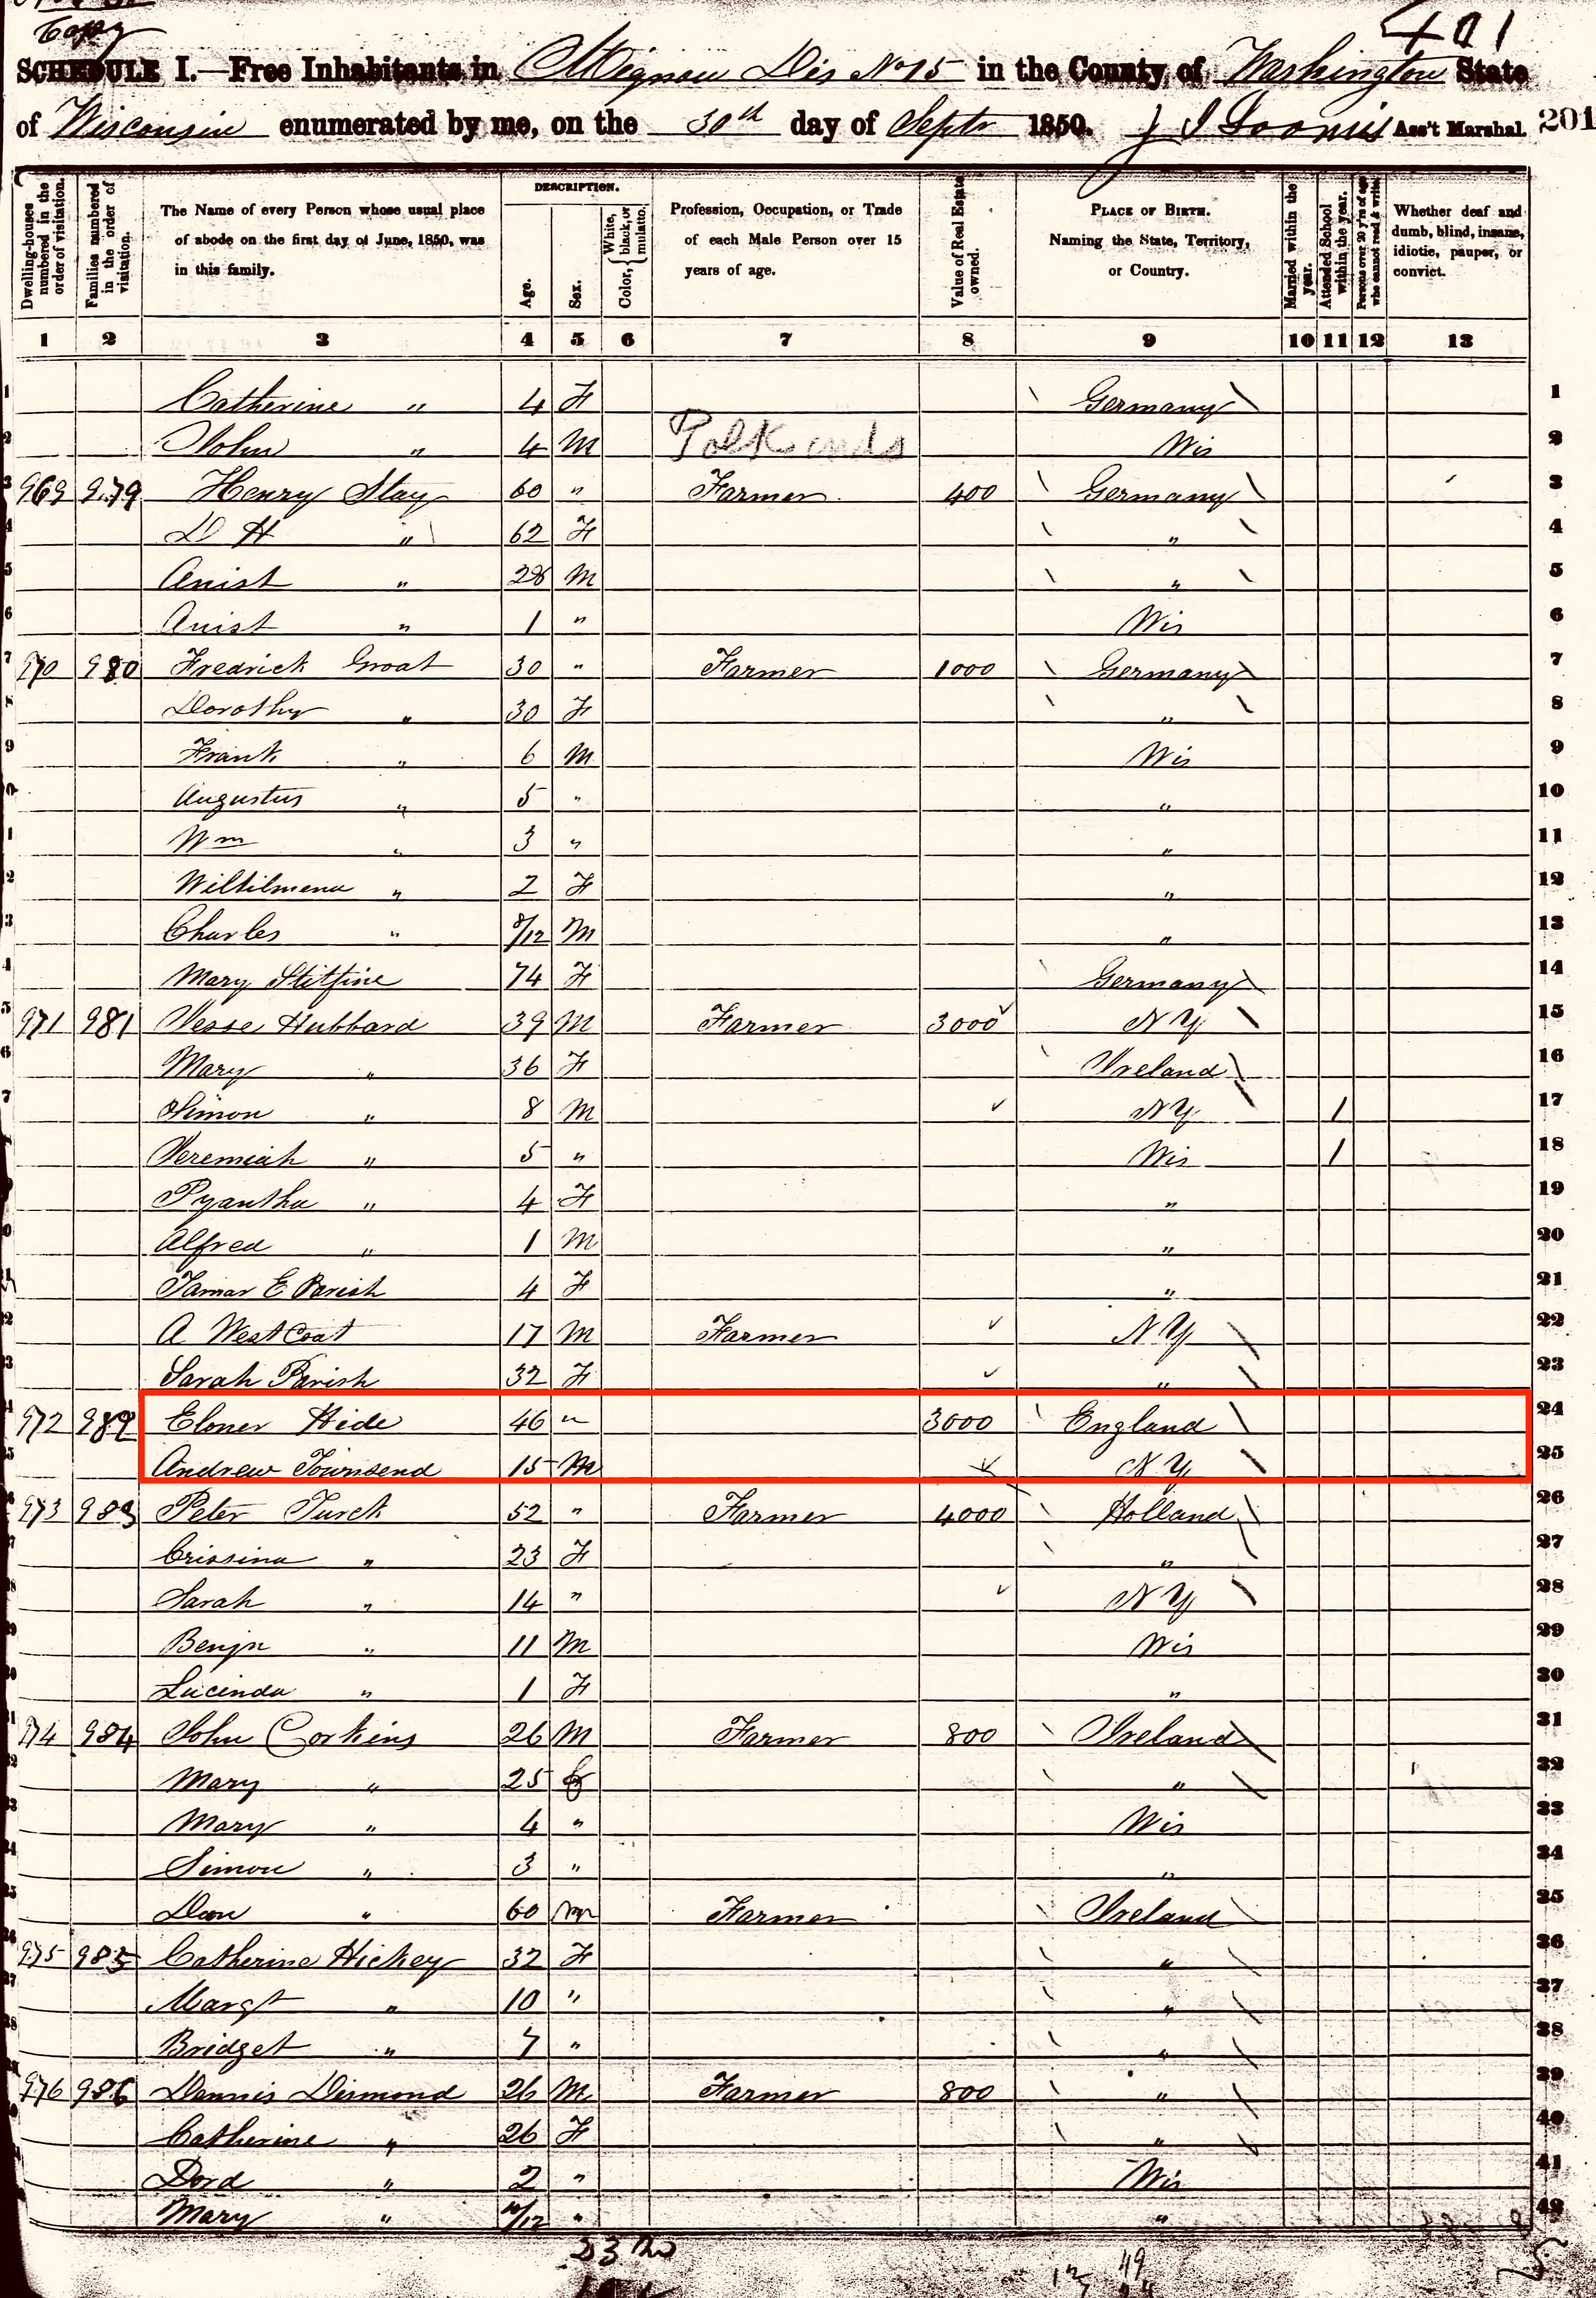 Copy
401
SCHEDULE I.—Free Inhabitants in Mequon Dis No 15 in the County of Washington State
of Wisconsin enumerated by me, on the 30th day of Septr 1850. J Loomis Ass't Marshal. 201
Dwelling-houses numbered in the order of visitation.
Families numbered in the order of visitation.
The Name of every Person whose usual place of abode on the first day of June, 1850, was in this family.
DESCRIPTION.
Age.
Sex.
Color, { White, black, or mulatto.
Profession, Occupation, or Trade of each Male Person over 15 years of age.
Value of Real Estate owned.
PLACE OF BIRTH. Naming the State, Territory, or Country.
Married within the year.
Attended School within the year.
Persons over 20 y'rs of age who cannot read & write.
Whether deaf and dumb, blind, insane, idiotic, pauper, or convict.
1 2 3 4 5 6 7 8 9 10 11 12 13
1 Catherine " 4 F Germany 1
2 John " 4 M Wis 2
3 969 979 Henry Stay 60 " Farmer 400 Germany 3
4 D H " 62 F " 4
5 Anist " 28 M " 5
6 Anist " 1 " Wis 6
7 970 980 Fredrick Groat 30 " Farmer 1000 Germany 7
8 Dorothy " 30 F " 8
9 Frank " 6 M Wis 9
0 Augustus " 5 " " 10
1 Wm " 3 " " 11
2 Wilhilmena " 2 F " 12
3 Charles " 8/12 M " 13
4 Mary Stitfine 74 F Germany 14
5 971 981 Jesse Hubbard 39 M Farmer 3000 N Y 15
6 Mary " 36 F Ireland 16
7 Simon " 8 M N Y 1 17
Jeremiah " 5 " Wis 1 18
Pyantha " 4 F " 19
0 Alfred " 1 M " 20
21 Tamar E Parish 4 F " 21
2 A West Coat 17 M Farmer N Y 22
23 Sarah Parish 32 F " 23
24 972 982 Eloner Hide 46 " 3000 England 24
25 Andrew Townsend 15 M N Y 25
26 973 983 Peter Turck 52 " Farmer 4000 Holland 26
27 Crissina " 23 F " 27
28 Sarah " 14 " N Y 28
29 Benjn " 11 M Wis 29
30 Lucinda " 1 F " 30
31 974 984 John Corkins 26 M Farmer 800 Ireland 31
32 Mary " 25 F " 32
33 Mary " 4 " Wis 33
34 Simon " 3 " " 34
35 Dan " 60 M Farmer Ireland 35
36 975 985 Catherine Hickey 32 F " 36
37 Margt " 10 " " 37
38 Bridget " 7 " " 38
39 976 986 Dennis Dimond 26 M Farmer 800 " 39
40 Catherine " 26 F " 40
41 Dord " 2 " Wis 41
42 Mary " 10/12 " " 42